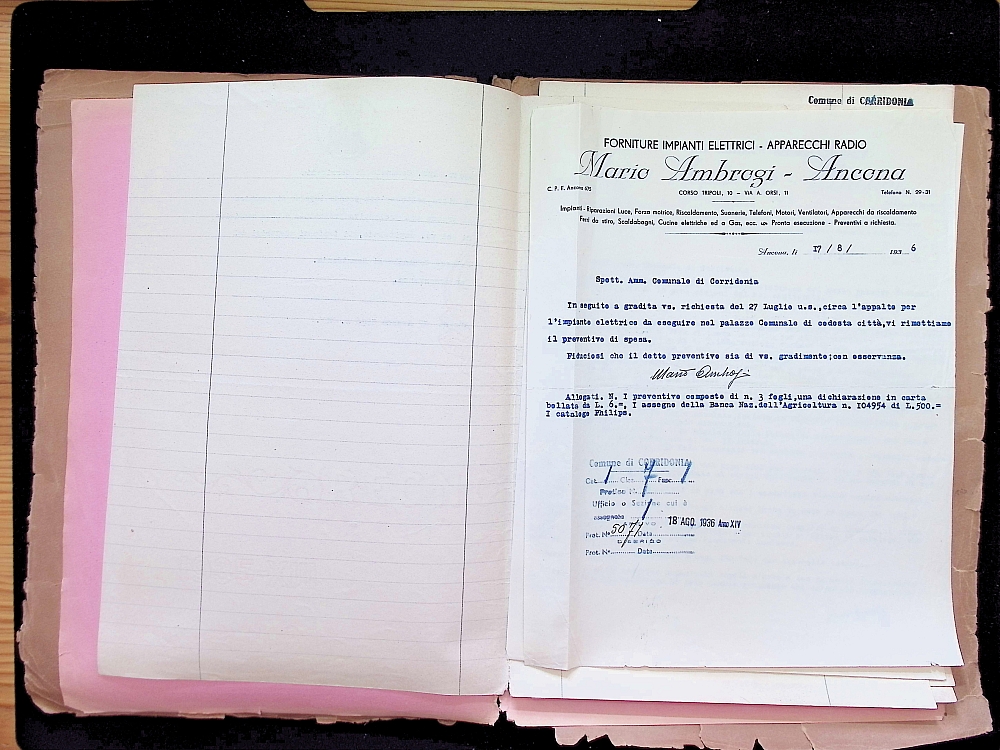 Comune di CORRIDONIA
FORNITURE IMPIANTI ELETTRICI - APPARECCHI RADIO
Mario Ambrogi - Ancona
C. P. E. Ancona 675
CORSO TRIPOLI, 10 - VIA A. ORSI, 11
Telefono N. 29-31
Impianti - Riparazioni Luce, Forza motrice, Riscaldamento, Suonerie, Telefoni, Motori, Ventilatori, Apparecchi da riscaldamento
Ferri da stiro, Scaldabagni, Cucine elettriche ed a Gas, ecc. Pronta esecuzione - Preventivi a richiesta.
Ancona, li 17 / 8 / 193 6
Spett. Amm. Comunale di Corridonia
In seguito a gradita vs. richiesta del 27 Luglio u.s., circa l'appalto per
l'impianto elettrico da eseguire nel palazzo Comunale di codesta città, vi rimettiamo
il preventivo di spesa.
Fiduciosi che il detto preventivo sia di vs. gradimento; con osservanza.
Mario Ambrogi
Allegati. N. I preventivo composto di n. 3 fogli, una dichiarazione in carta
bollata da L. 6.=, I assegno della Banca Naz. dell'Agricoltura n. I04954 di L.500.=
I catalogo Philips.
Comune di CORRIDONIA
Cat. 1 Clas. 7 Fasc. 1
Ufficio o Sezione cui è
assegnato 1
18 AGO. 1936 Anno XIV
Prot. N° 5077 Data
Prot. N° Data